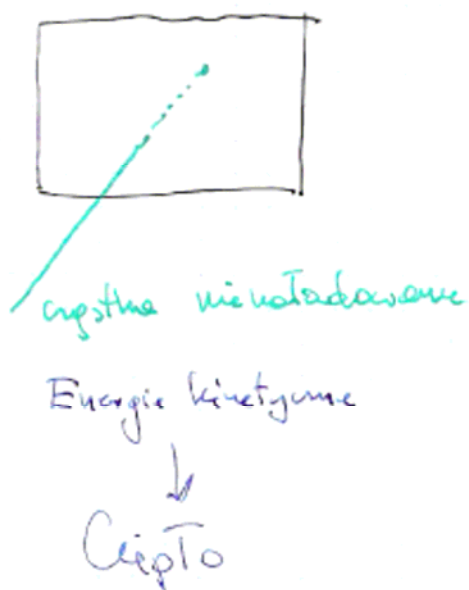 cząstka nienaładowana
Energia kinetyczna
Ciepło